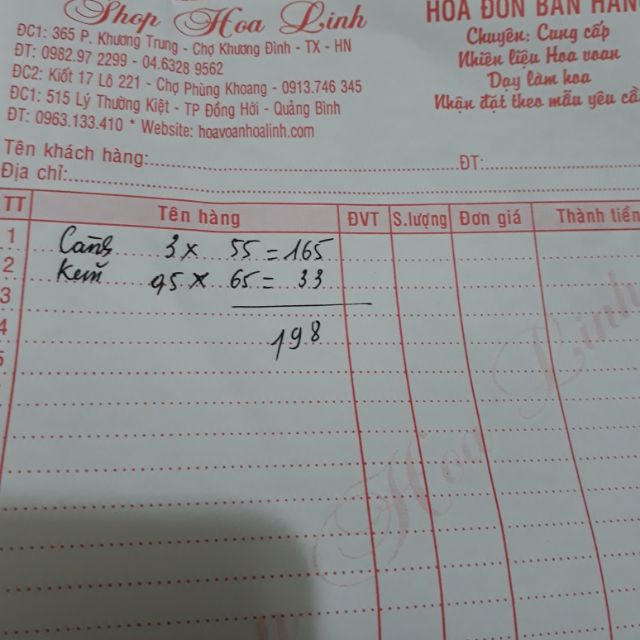 Shop Hoa Linh
HÓA ĐƠN BÁN HÀN
ĐC1: 365 P. Khương Trung - Chợ Khương Đình - TX - HN
ĐT: 0982.97 2299 - 04.6328 9562
ĐC2: Kiốt 17 Lô 221 - Chợ Phùng Khoang - 0913.746 345
ĐC1: 515 Lý Thường Kiệt - TP Đồng Hới - Quảng Bình
ĐT: 0963.133.410 * Website: hoavoanhoalinh.com
Chuyên: Cung cấp
Nhiên liệu Hoa voan
Dạy làm hoa
Nhận đặt theo mẫu yêu cầ
Tên khách hàng: ĐT:
Địa chỉ:
TT Tên hàng ĐVT S.lượng Đơn giá Thành tiền
1 3 x 55 = 165
2 Kem 0,5 x 65 = 33
3
4 198
5
Hoa Linh